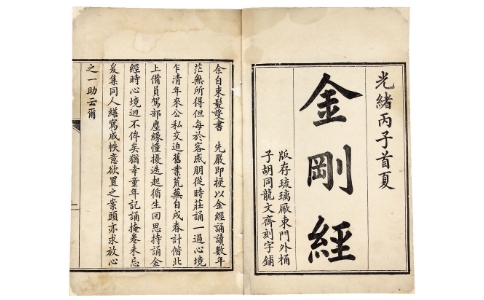 光緒丙子首夏
金剛經
版存琉璃廠東門外桶
子胡同龍文齋刻字鋪
余自束髮受書 先嚴即授以金經誦讀數年
茫無所得但每於客感朋從時莊誦一過心境
乍清年來公私交迫舊業荒蕪自戌春計偕北
上備員駕部塵緣憧擾迭起循生回思持誦金
經時心境迥不侔矣猶幸童年記誦掩卷未忘
爰集同人繕寫成帙意欲置之案頭亦求放心
之一助云爾